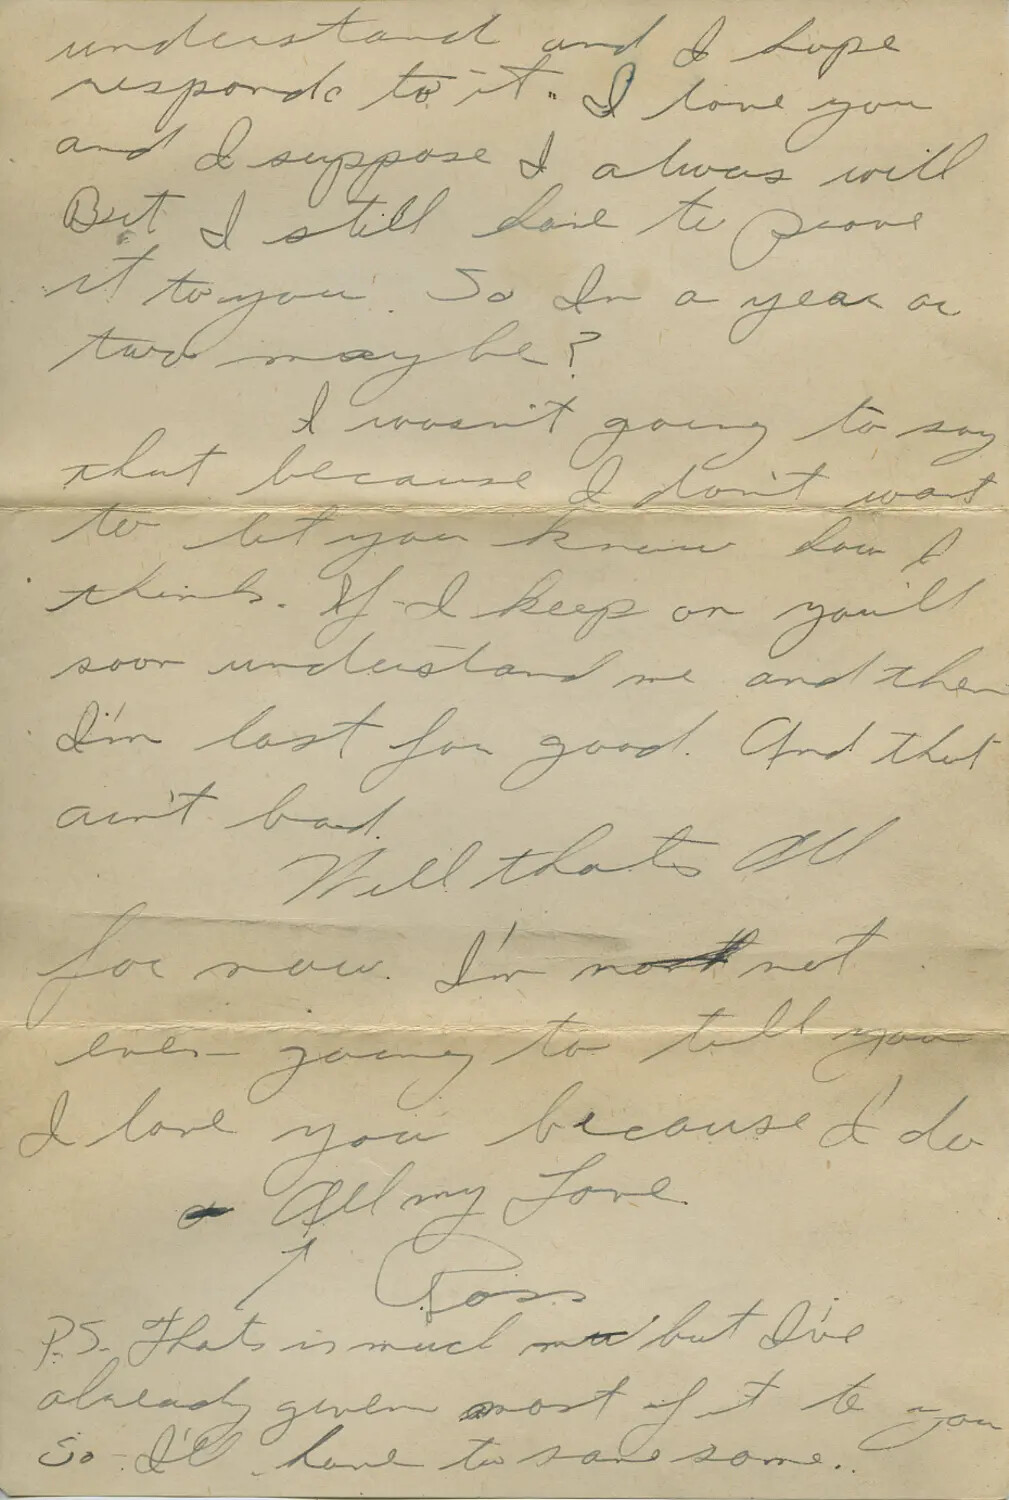 understand and I hope
responds to it. I love you
and I suppose I always will
But I still have to prove
it to you. So In a year or
two maybe?
I wasn't going to say
that because I don't want
to let you know how I
think. If I keep on you'll
soon understand me and then
I'm lost for good. And that
ain't bad.
Well thats All
for now. I'm not
ever going to tell you
I love you because I do
All my Love
Ross
P.S. Thats is much but I've
already given most of it to you
So I'll have to save some..